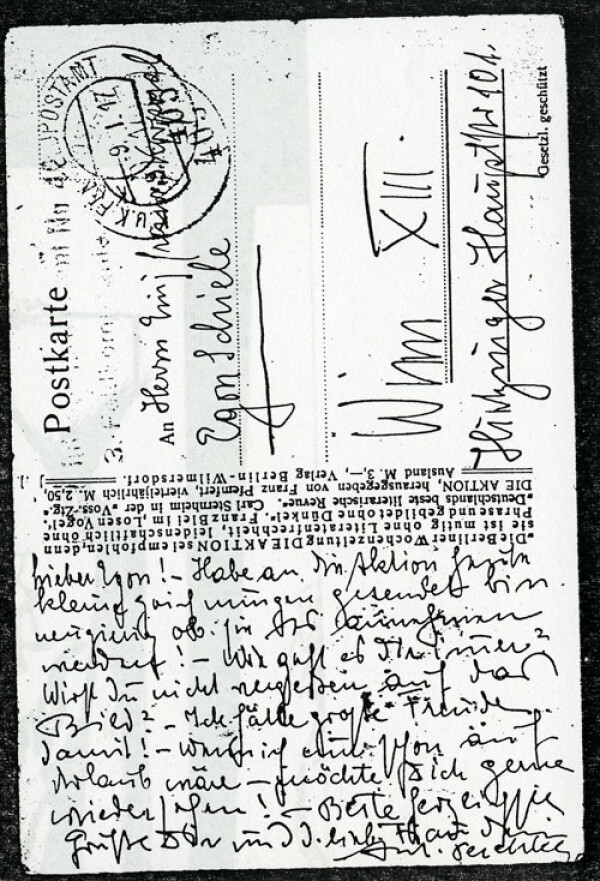 Postkarte
3. Feldkom
K.u.K. FELDPOSTAMT
9. I. 17
An Herrn Einj.
Egon Schiele
Wien XIII.
Hietzinger Hauptstr 101.
Gesetzl. geschützt
„Die Berliner Wochenzeitung DIE AKTION sei empfohlen, denn
sie ist mutig ohne Literatenfrechheit, leidenschaftlich ohne
Phrase und gebildet ohne Dünkel". Franz Blei im „Losen Vogel".
„Deutschlands beste literarische Revue". Carl Sternheim in der „Voss. Ztg."
DIE AKTION, herausgegeben von Franz Pfemfert, vierteljährlich M. 2,50,
Ausland M. 3,—, Verlag Berlin-Wilmersdorf.
Lieber Egon! – Habe an die Aktion
kleine Zeichnungen gesendet bin
neugierig ob sie das annehmen
werden! – Wie geht es Dir immer?
Wirst Du nicht vergessen auf das
Bild? – Ich hätte große Freude
damit! – Wenn ich nur schon auf
Urlaub wäre – möchte Dich gerne
wiedersehen! – Beste herzlichste
Grüße Dir und d. lieb. Frau Dein